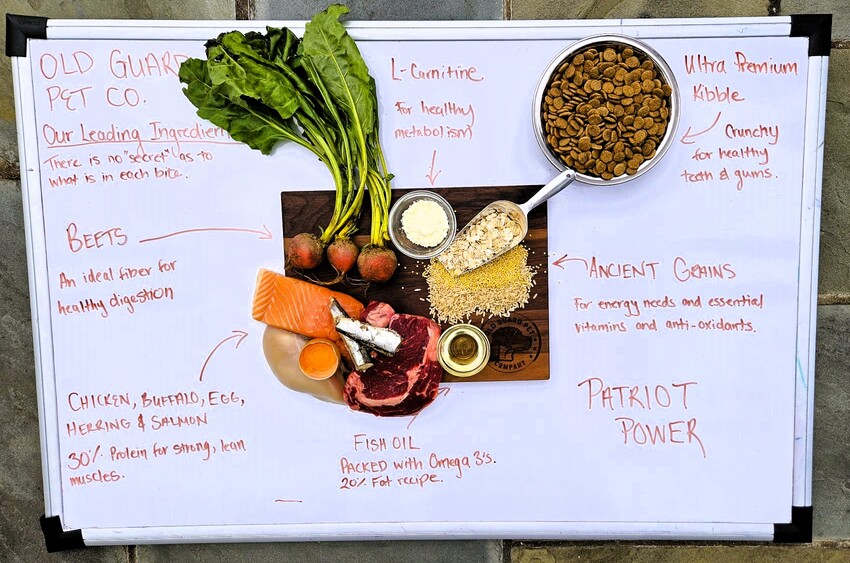 OLD GUARD
PET CO.
Our Leading Ingredien
There is no "secret" as to
what is in each bite.
L-Carnitine
For healthy
metabolism
Ultra Premium
Kibble
Crunchy
for healthy
teeth & gums.
BEETS
An ideal fiber for
healthy digestion
ANCIENT GRAINS
For energy needs and essential
vitamins and anti-oxidants.
CHICKEN, BUFFALO, EGG,
HERRING & SALMON
30% Protein for strong, lean
muscles.
FISH OIL
PACKED with Omega 3's.
20% Fat recipe.
PATRIOT
POWER
COMPANY